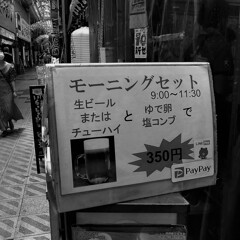 モーニングセット
9:00～11:30
生ビール
または
チューハイ
と
ゆで卵
塩コンブ
で
350円
PayPay